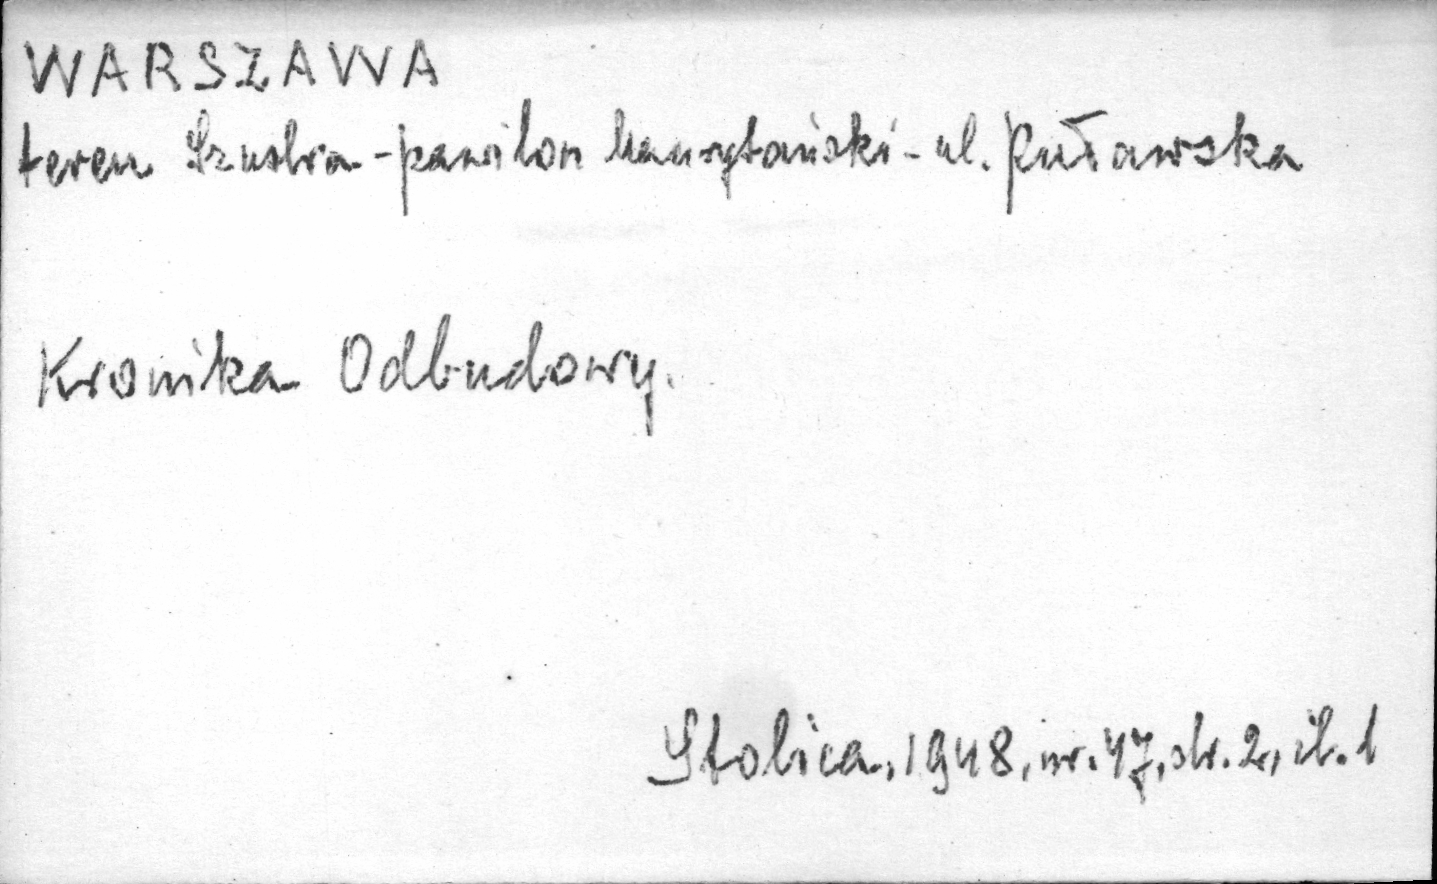 WARSZAWA
teren Szustra - pawilon mauretański - ul. Puławska
Kronika Odbudowy.
Stolica, 1948, nr. 47, str. 2, il. 1